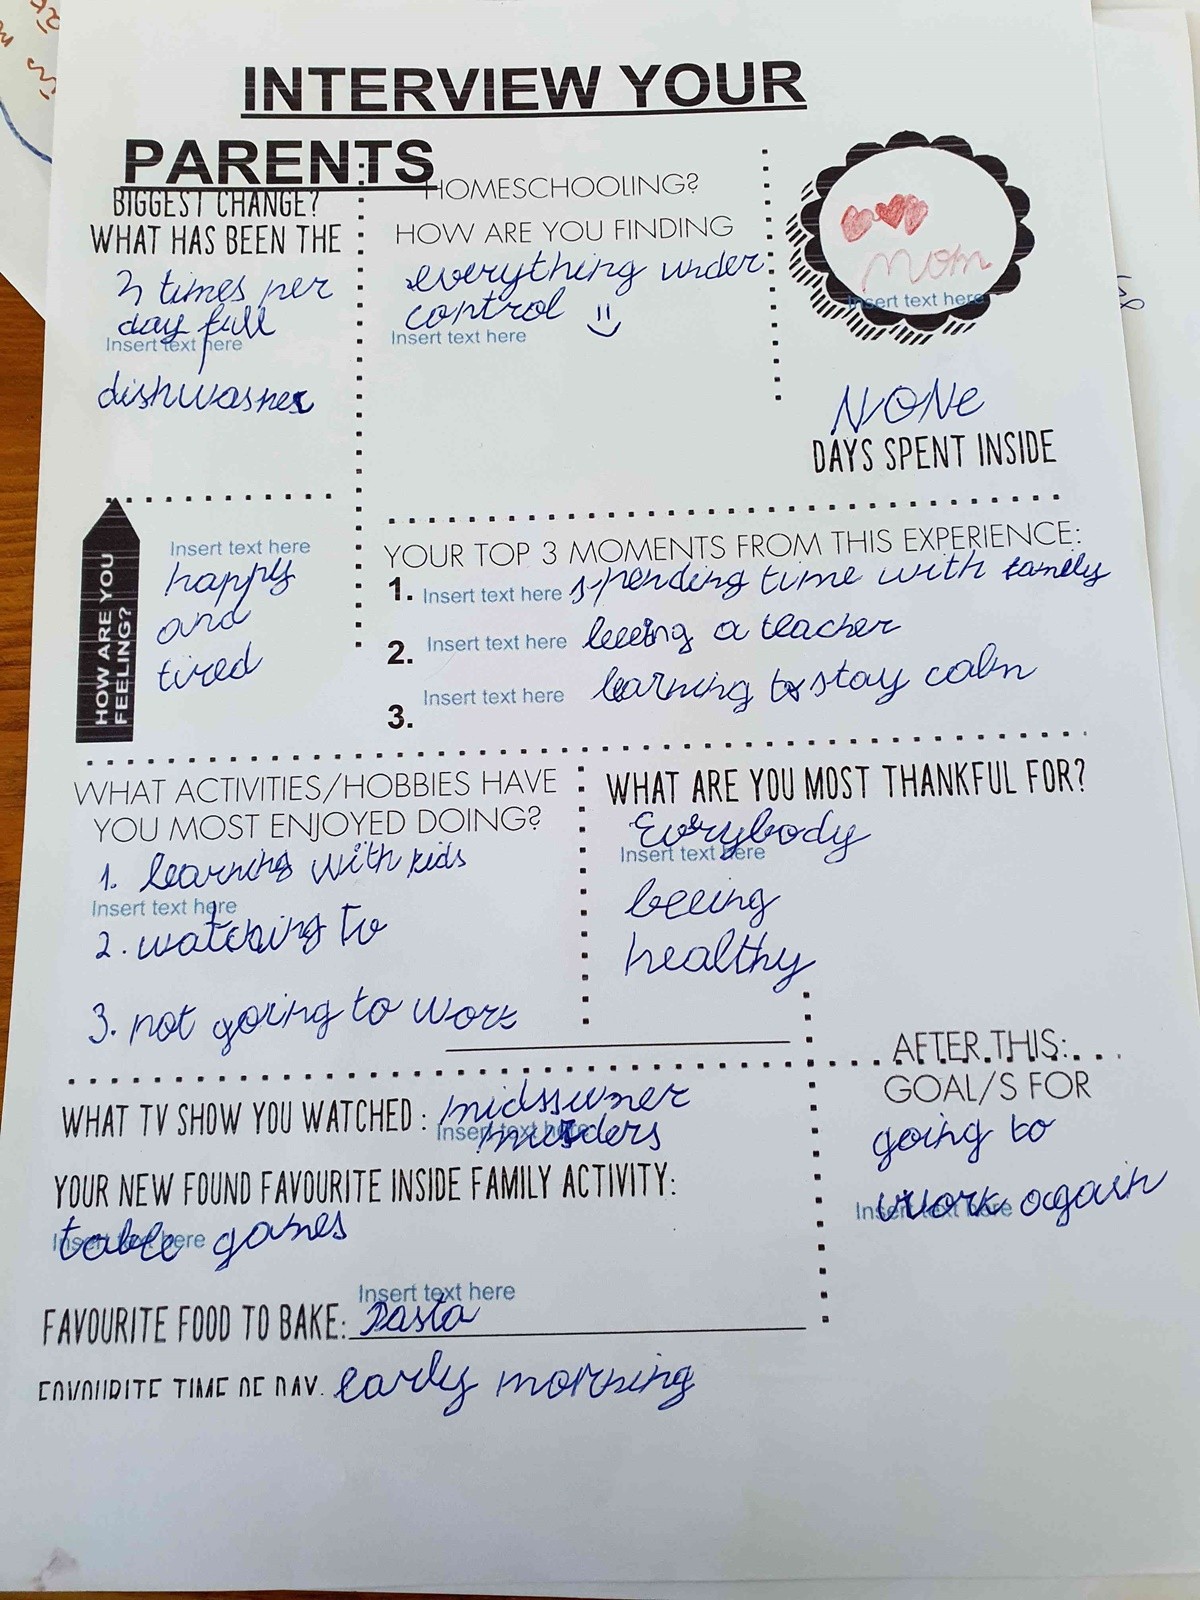 INTERVIEW YOUR
PARENTS
BIGGEST CHANGE?
WHAT HAS BEEN THE
times per
day full
Insert text here
dishwasher
HOMESCHOOLING?
HOW ARE YOU FINDING
everything under
control
Insert text here
Mom
Insert text here
NONe
DAYS SPENT INSIDE
HOW ARE YOU
FEELING?
Insert text here
happy
and
tired
YOUR TOP 3 MOMENTS FROM THIS EXPERIENCE:
1. Insert text here spending time with family
2. Insert text here beeing a teacher
3. Insert text here learning to stay calm
WHAT ACTIVITIES/HOBBIES HAVE
YOU MOST ENJOYED DOING?
1. learning with kids
Insert text here
2. watching tv
3. not going to work
WHAT ARE YOU MOST THANKFUL FOR?
Everybody
Insert text here
beeing
healthy
AFTER THIS:
GOAL/S FOR
going to
work again
Insert text here
WHAT TV SHOW YOU WATCHED: midssumer
Insert text here
murders
YOUR NEW FOUND FAVOURITE INSIDE FAMILY ACTIVITY:
table games
Insert text here
Insert text here
FAVOURITE FOOD TO BAKE: Pasta
FAVOURITE TIME OF DAY: early morning